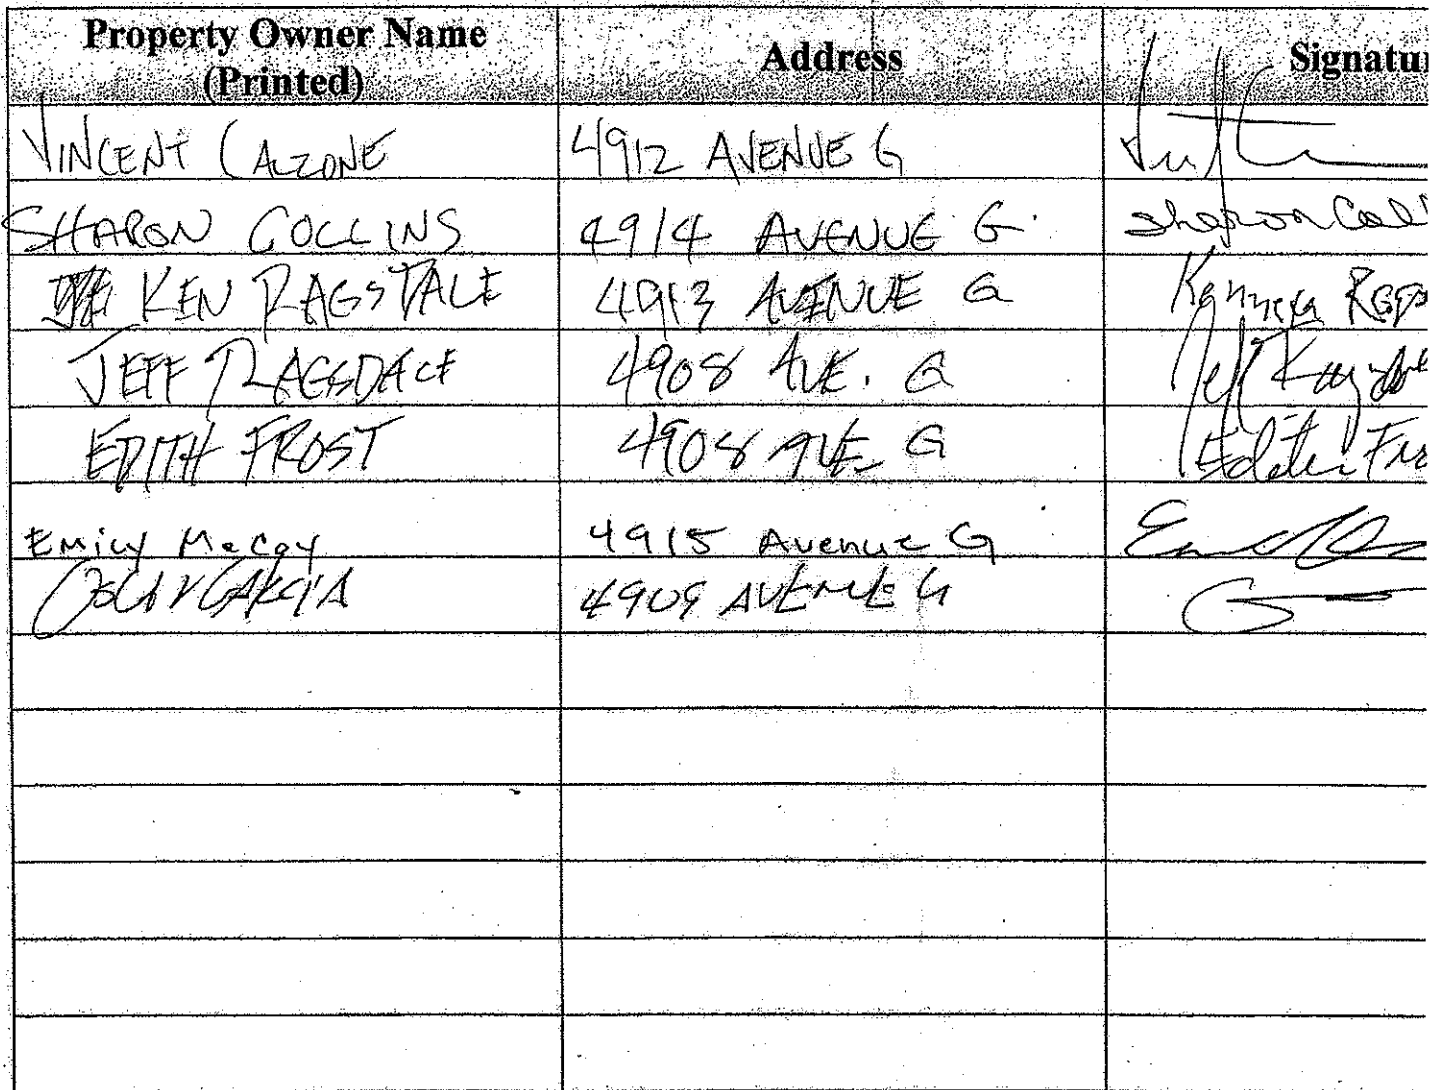 Property Owner Name Address Signatu
(Printed)
VINCENT CALZONE 4912 AVENUE G
SHARON COLLINS 4914 AVENUE G. Sharon Coll
KEN RAGSDALE 4913 AVENUE G
JEFF RAGSDALE 4908 AVE. G Jeff
EDITH FROST 4908 AVE. G Edith Fro
Emily McCoy 4915 Avenue G
OSCAR GARCIA 4909 AVENUE G